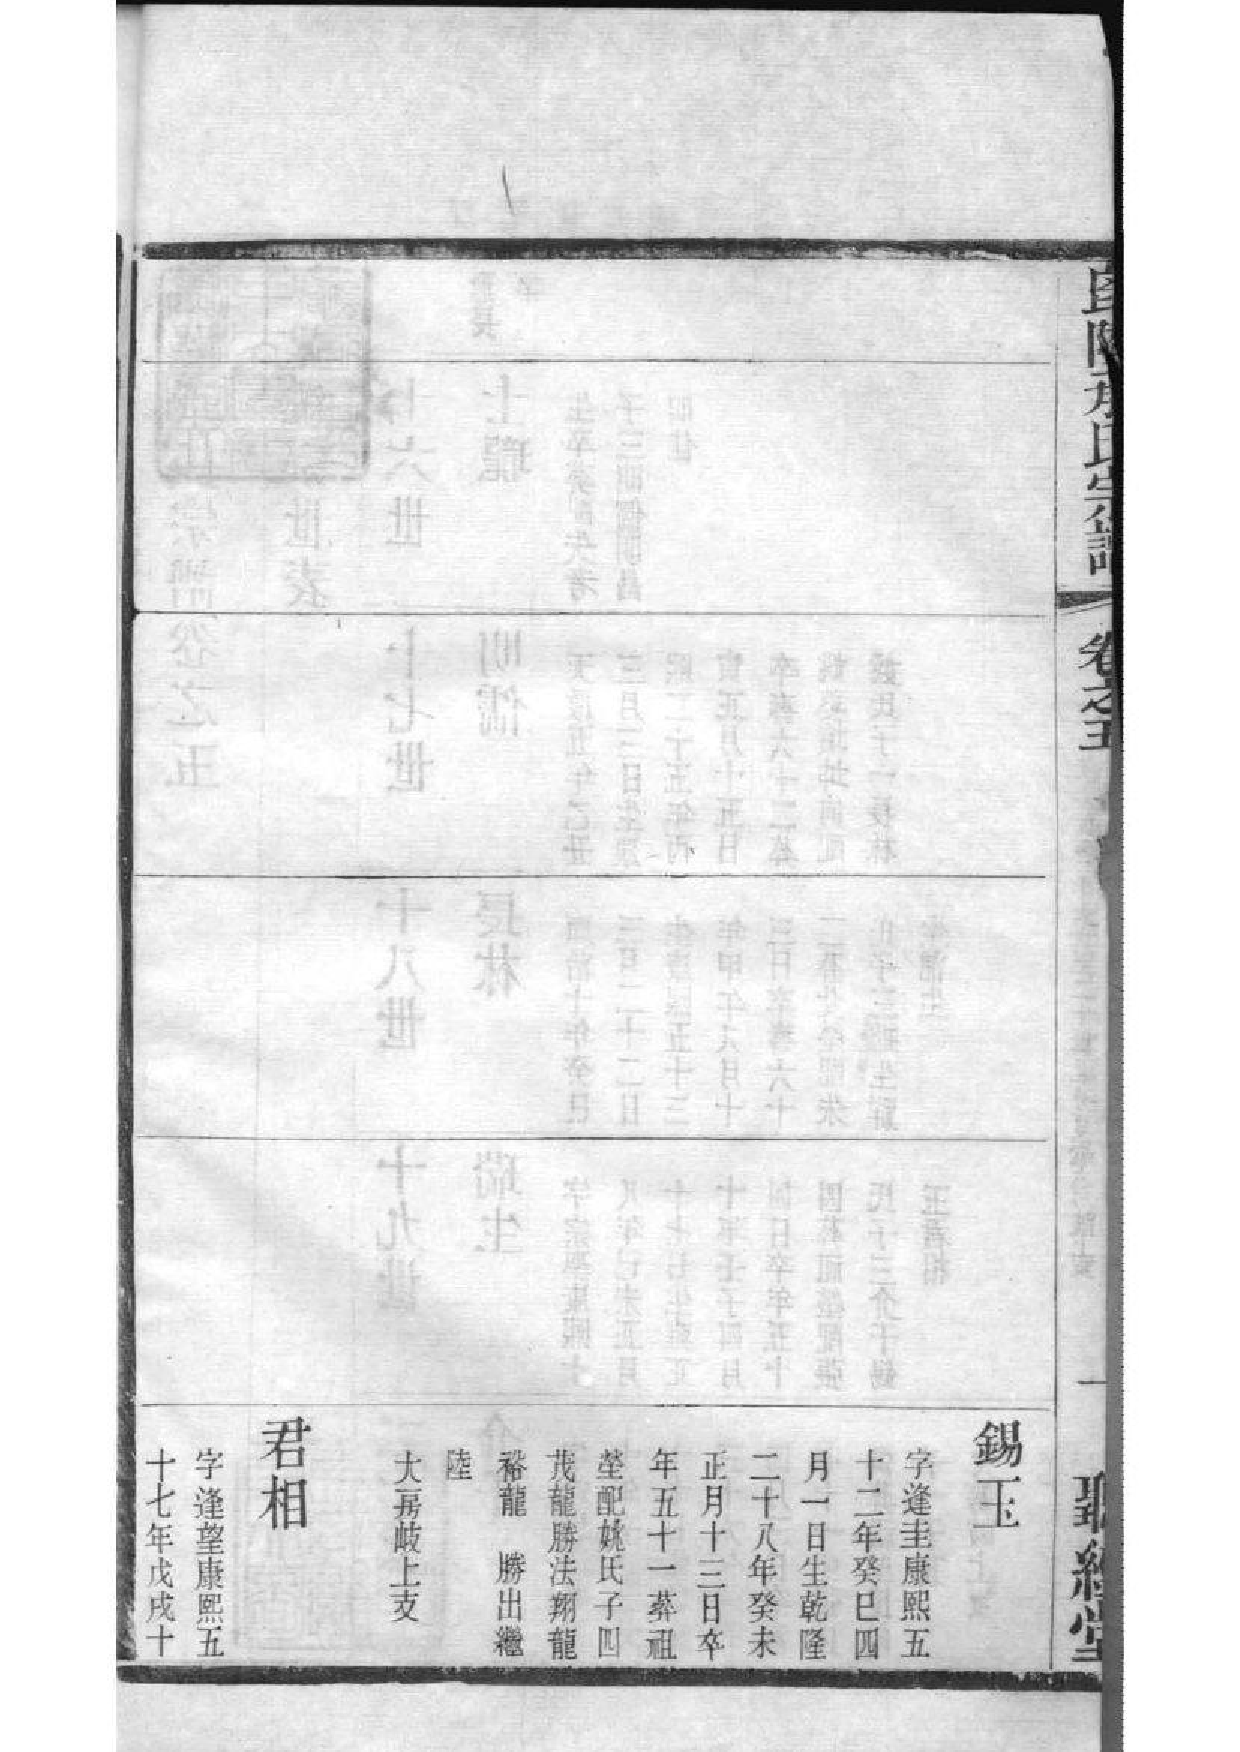 氏宗譜
卷之五
一
聽經堂
錫玉
字逢圭康熙五
十二年癸巳四
月一日生乾隆
二十八年癸未
正月十三日卒
年五十一葬祖
塋配姚氏子四
茂龍勝法翔龍
裕龍 勝出繼
陸
大房岐上支
君相
字逢望康熙五
十七年戊戌十